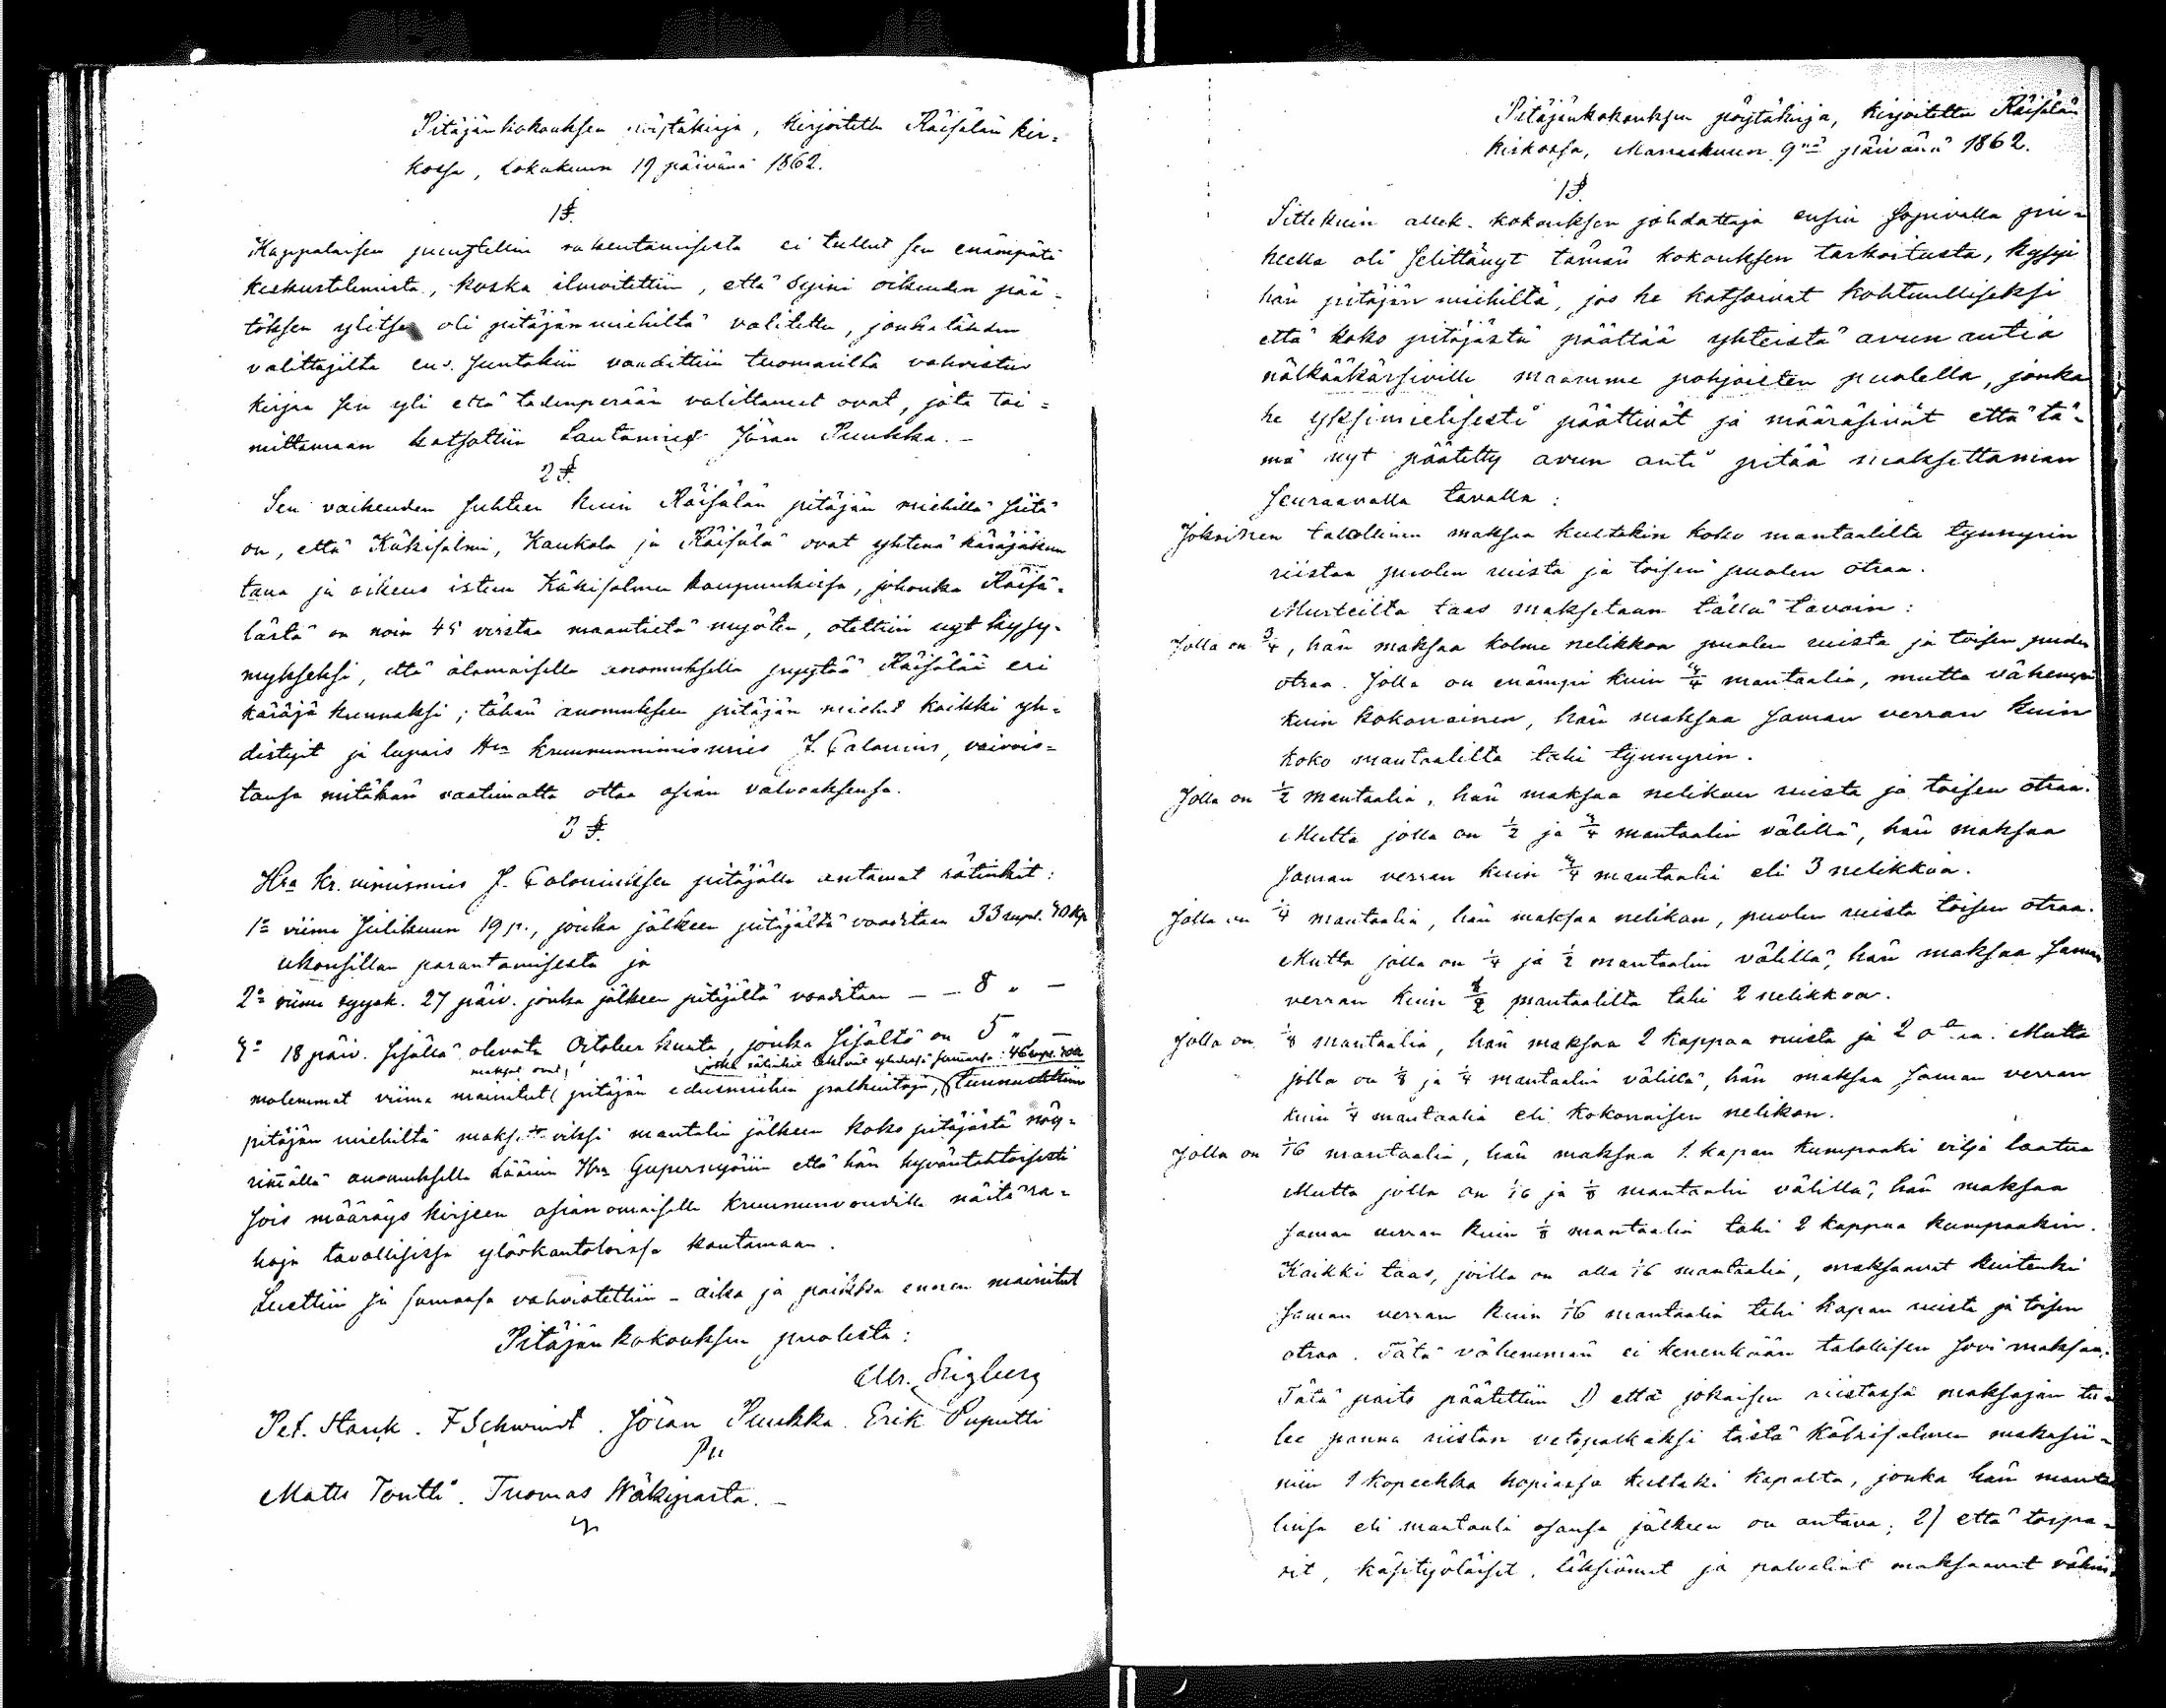 Pitäjänkokouksen pöytäkirja, kirjoitettu Räisälän kir-
kossa, Lokakuun 19 päivänä 1862.
1 §.
Kappalaisen puustellin rakentamisesta ei tullut sen enämpätä
keskustelemista, koska ilmoitettiin, että Syini oikeuden pää-
töksen ylitse oli pitäjänmiehiltä valitettu, jonkatähden
valittajilta ens. Juntakiin vaadittiin tuomarilta vahvistus
kirjaa sen yli että todenperään valittaneet ovat, jota toi-
mittamaan katsottiin Lautamies Jöran Puukka. -
2 §.
Sen vaikeuden suhteen kuin Räisälän pitäjän miehillä siitä
on, että Käkisalmi, Kaukola ja Räisälä ovat yhtenä käräjäkun
tana ja oikeus istuu Käkisalmen kaupunkissa, johonka Räisä-
lästä on noin 45 virstaa maantietä myöten, otettiin nyt kysy-
mykseksi, että alamaisella anomuksella pyytää Räisälää eri
käräjä kunnaksi; tähän anomukseen pitäjän miehet kaikki yh-
distyit ja lupais Hra kruununnimismies J. Calonius, vaivois-
tansa mitäkän vaatimatta ottaa asian valvoaksensa.
3 §.
Hra Kr. nimismies J. Caloniuksen pitäjälle antamat rätinkit:
1o viime Juilikuun 19 p., jonka jälkeen pitäjältä vaaditaan 33 rupl. 40 kp
ukonsillan parantamisesta ja
2o viime syysk. 27 päiv. jonka jälkeen pitäjältä vaaditaan - - 8 " -
3o 18 päiv. sisällä olevata October kuuta, jonka sisältö on 5 " -
maksut ovat, jotka rätinkit tekevät yhdessä summassa: 46 rupl. 40 k
molemmat viime mainitut pitäjän edusmiehen palkintoja, tunnustettiin
pitäjän miehiltä maksettaviksi mantalin jälkeen koko pitäjästä nöy-
rimällä anomuksella Läänin Hra Gupernyöriin että hän hyväntahtoisesti
sois määräys kirjeen asianomaiselle kruununvoudille näitä ra-
hoja tavallisissa ylöskantoloissa kantamaan.
Luettiin ja samassa vahvistettiin - aika ja paikka ennen mainitut
Pitäjän kokouksen puolesta:
Pet. Stark. F Schwindt. Jöran Puukka. Erik Puputti
Matts Tontti. Tuomas Wäkiparta. -
Pitäjänkokouksen pöytäkirja, kirjoitettu Räisälän
kirkossa, Marraskuun 9nä päivänä 1862.
1 §.
Sittekuin allek. kokouksen johdattaja ensin sopivalla pu-
heella oli selittänyt tämän kokouksen tarkoitusta, kysyi
hän pitäjän miehiltä, jos he katsoivat kohtuulliseksi
että koko pitäjästä päättää yhteistä avun antia
nälkääkärsiville maamme pohjoisten puolella, jonka
he yksimielisesti päättivät ja määräsivät että tä-
mä nyt päätetty avun anti pitää maksettaman
seuraavalla tavalla:
Jokainen talollinen maksaa kultakin koko mantaalilta tynnyrin
riistaa puolen ruista ja toisen puolen otraa.
Murteilta taas maksetaan tällä tavoin:
Jolla on 3/4, hän maksaa kolme nelikkoa puolen ruista ja toisen puolen
otraa. Jolla on enämpi kuin 3/4 mantaalia, mutta vähempi
kuin kokonainen, hän maksaa saman verran kuin
koko mantaalilta tahi tynnyrin.
Jolla on 1/2 mantaalia, hän maksaa nelikon ruista ja toisen otraa.
Mutta jolla on 1/2 ja 3/4 mantaalin välillä, hän maksaa
saman verran kuin 3/4 mantaalia eli 3 nelikkoa.
Jolla on 1/4 mantaalia, hän maksaa nelikon, puolen ruista toisen otraa.
Mutta jolla on 1/4 ja 1/2 mantaalin välillä, hän maksaa saman
verran kuin 1/2 mantaalilta tahi 2 nelikkoa.
Jolla on 1/8 mantaalia, hän maksaa 2 kappaa ruista ja 2 otraa. Mutta
jolla on 1/8 ja 1/4 mantaalin välillä, hän maksaa saman verran
kuin 1/4 mantaalia eli kokonaisen nelikon.
Jolla on 1/16 mantaalia, hän maksaa 1. kapan kumpaaki vilja laatua
Mutta jolla on 1/16 ja 1/8 mantaalin välillä, hän maksaa
saman verran kuin 1/8 mantaalia tahi 2 kappaa kumpaakin.
Kaikki taas, joilla on alla 1/16 mantaalia, maksaavat kuitenki
saman verran kuin 1/16 mantaalia tahi kapan ruista ja toisen
otraa. Tätä vähemmän ei kenenkään talollisen sovi maksaa.
Tätä paits päätettiin 1) että jokaisen riistassa maksajan tu-
lee panna riistan vetopalkaksi tästä Käkisalmen makasii-
niin 1 kopeekka hopiassa kultaki kapalta, jonka hän manta
linsa eli mantaali osansa jälkeen on antava; 2) että torpa-
rit, käsityöläiset, läksiämet ja palveliat maksaavat vähin